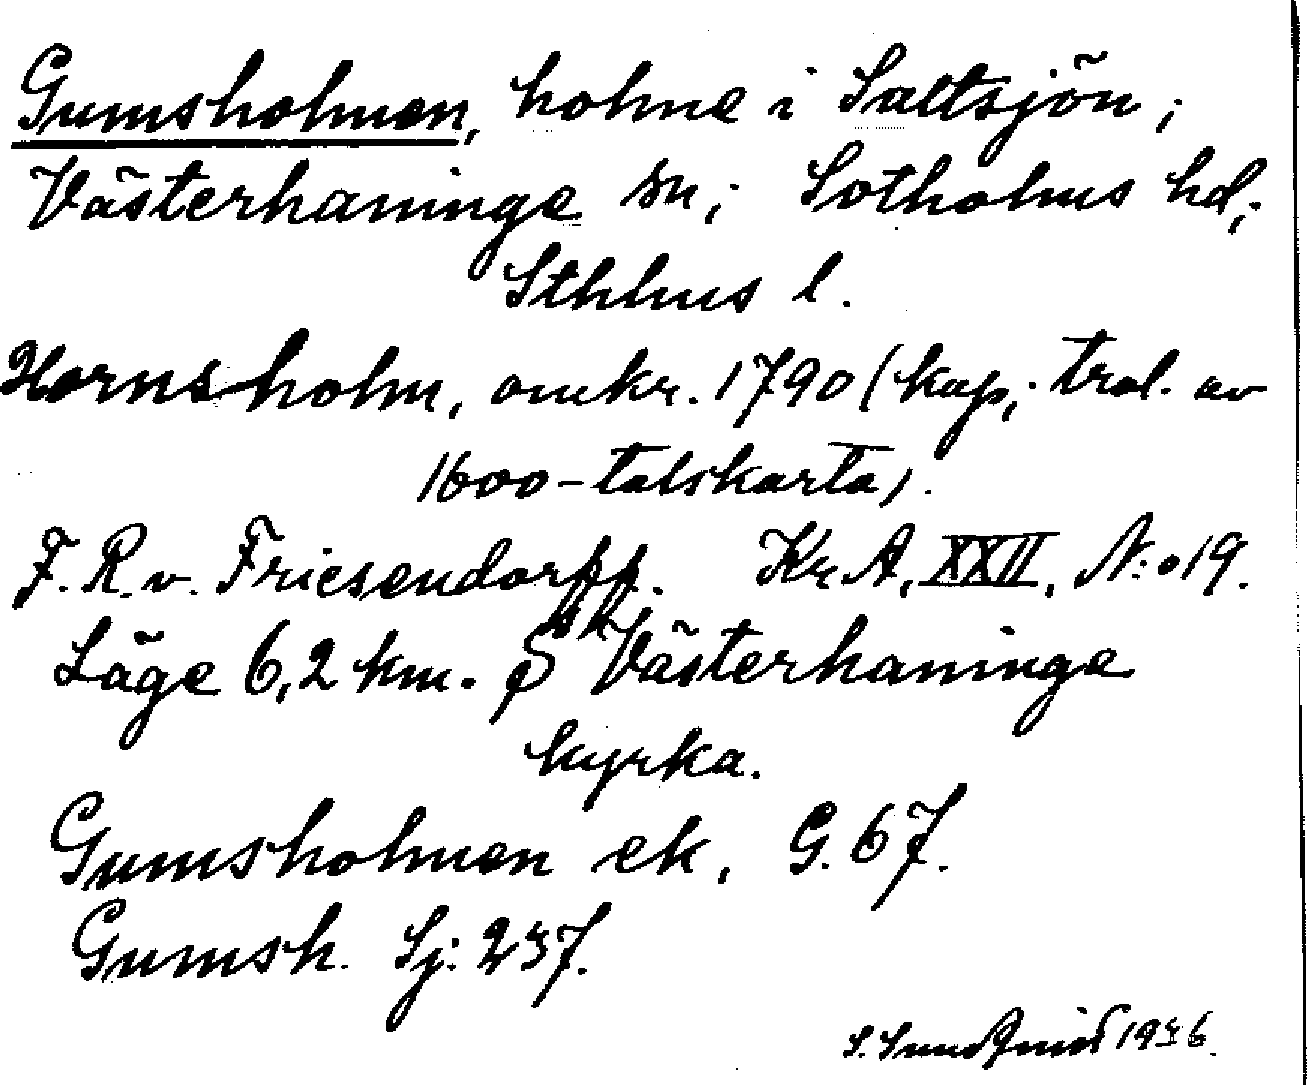 Gumsholmen, holme i Saltsjön;
Västerhaninge sn; Sotholms hd;
Sthlms l.
Hornsholm, omkr. 1790 (kop; trol. av
1600-talskarta).
F. R. v. Friesendorff. Kr. A, XXII, N:o 19.
Läge 6,2 km. Västerhaninge
kyrka.
Gumsholmen ek, G. 67.
Gumsh. Sj: 237.
S. Sundqvist 1936.